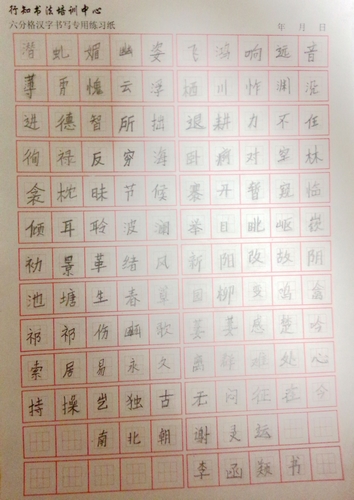 行知书法培训中心
六分格汉字书写专用练习纸 年 月 日
潜虬媚幽姿 飞鸿响远音
薄霄愧云浮 栖川怍渊沉
进德智所拙 退耕力不任
徇禄反穷海 卧疴对空林
衾枕昧节候 褰开暂窥临
倾耳聆波澜 举目眺岖嵚
初景革绪风 新阳改故阴
池塘生春草 园柳变鸣禽
祁祁伤豳歌 萋萋感楚吟
索居易永久 离群难处心
持操岂独古 无闷征在今
南北朝 谢灵运
李函书